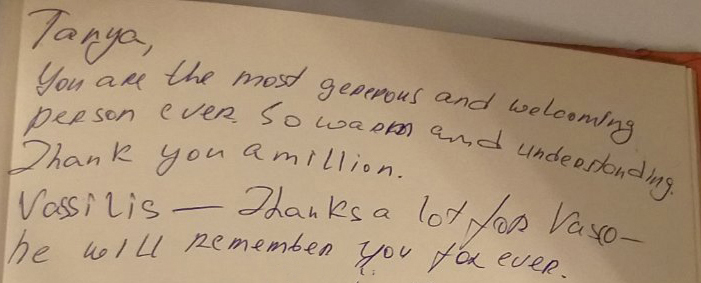 Tanya,
You are the most generous and welcoming
person ever. So warm and understanding.
Thank you a million.
Vassilis — Thanks a lot for Vaso –
he will remember you for ever.